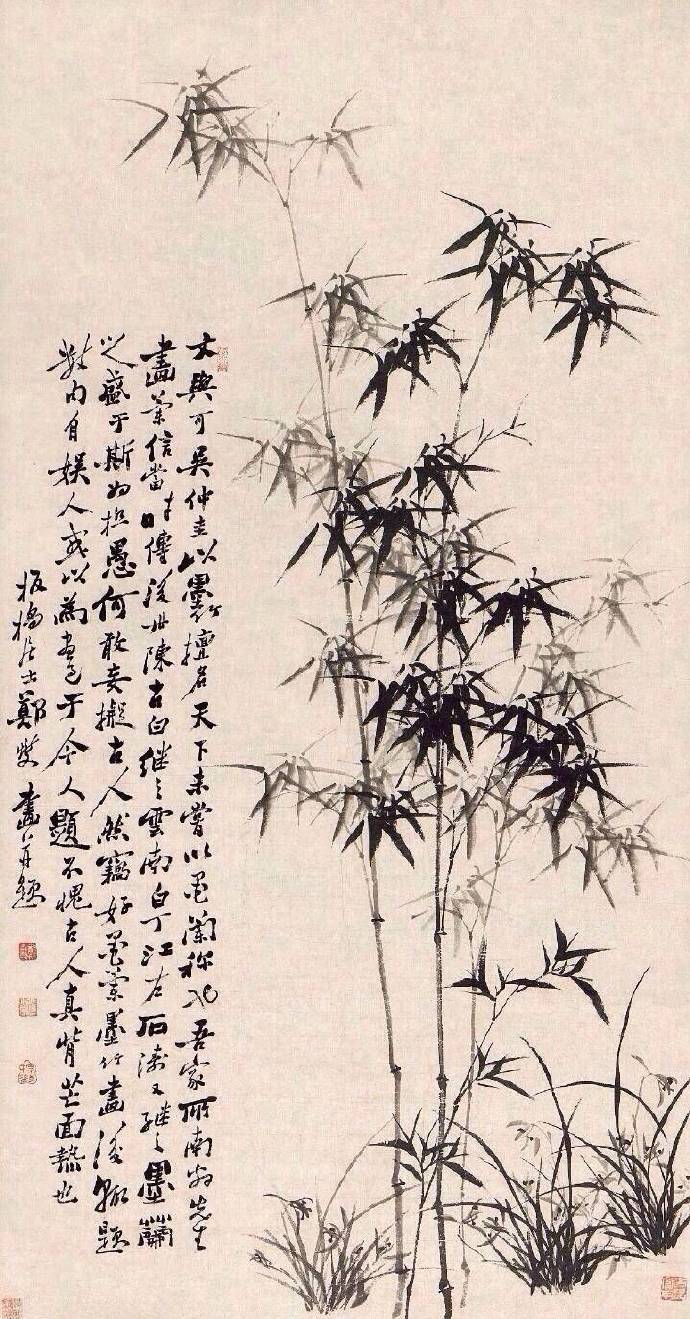 文與可吴仲圭以墨竹擅名天下未嘗以墨蘭称也吾家所南翁先生
畫蘭信當時傳後世陳古白继之雲南白丁江左石濤又继之墨蘭
之盛于斯為極愚何敢妄擬古人然竊好墨蘭墨竹畫後輒題
數句自娱人或以為畫 于今人題不愧古人真背芒面熱也
板橋居士鄭燮畫并題